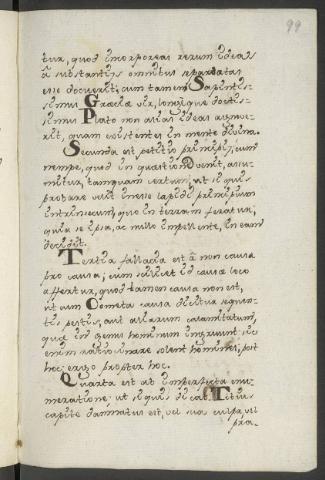 99
tur, quod incorporeas rerum ideas
à substantiis omnibus separatas
esse docuerit; cum tamen Sapientis-
simus Græciæ vir, longeque doctis-
simus Plato non alias ideas agnove-
rit, quam existentes in mente divina.
Secunda est petitio principii; cum
nempe, quod in quæstionem venit, assu-
mitur, tamquam certum; ut si quis
probare velit inesse lapidi principium
intrinsecum, quo in terram feratur;
quia se ipsa, ac nullo impellente, in eam
decidit.
Tertia fallacia est à non causa
pro causa; cum scilicet id causæ loco
affertur, quod tamen causa non est,
ut cum Cometa causa dicitur sequen-
tis pestis, aut aliarum calamitatum,
quæ in genus humanum ingruunt: sic
enim ratiocinare solent homines; post
hoc: ergo propter hoc.
Quarta est ab imperfecta enu-
meratione; ut si quis dicat: Titius
capite damnatus est, vel sua culpa, vel
pra-